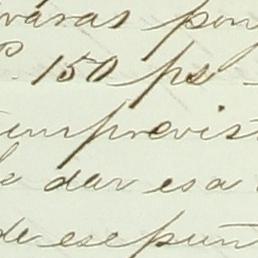 varas por
150 ps
imprevist
dar esa
de ese punt